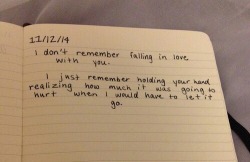 11/12/14
I don't remember falling in love
with you.
I just remember holding your hand
realizing how much it was going to
hurt when I would have to let it
go.